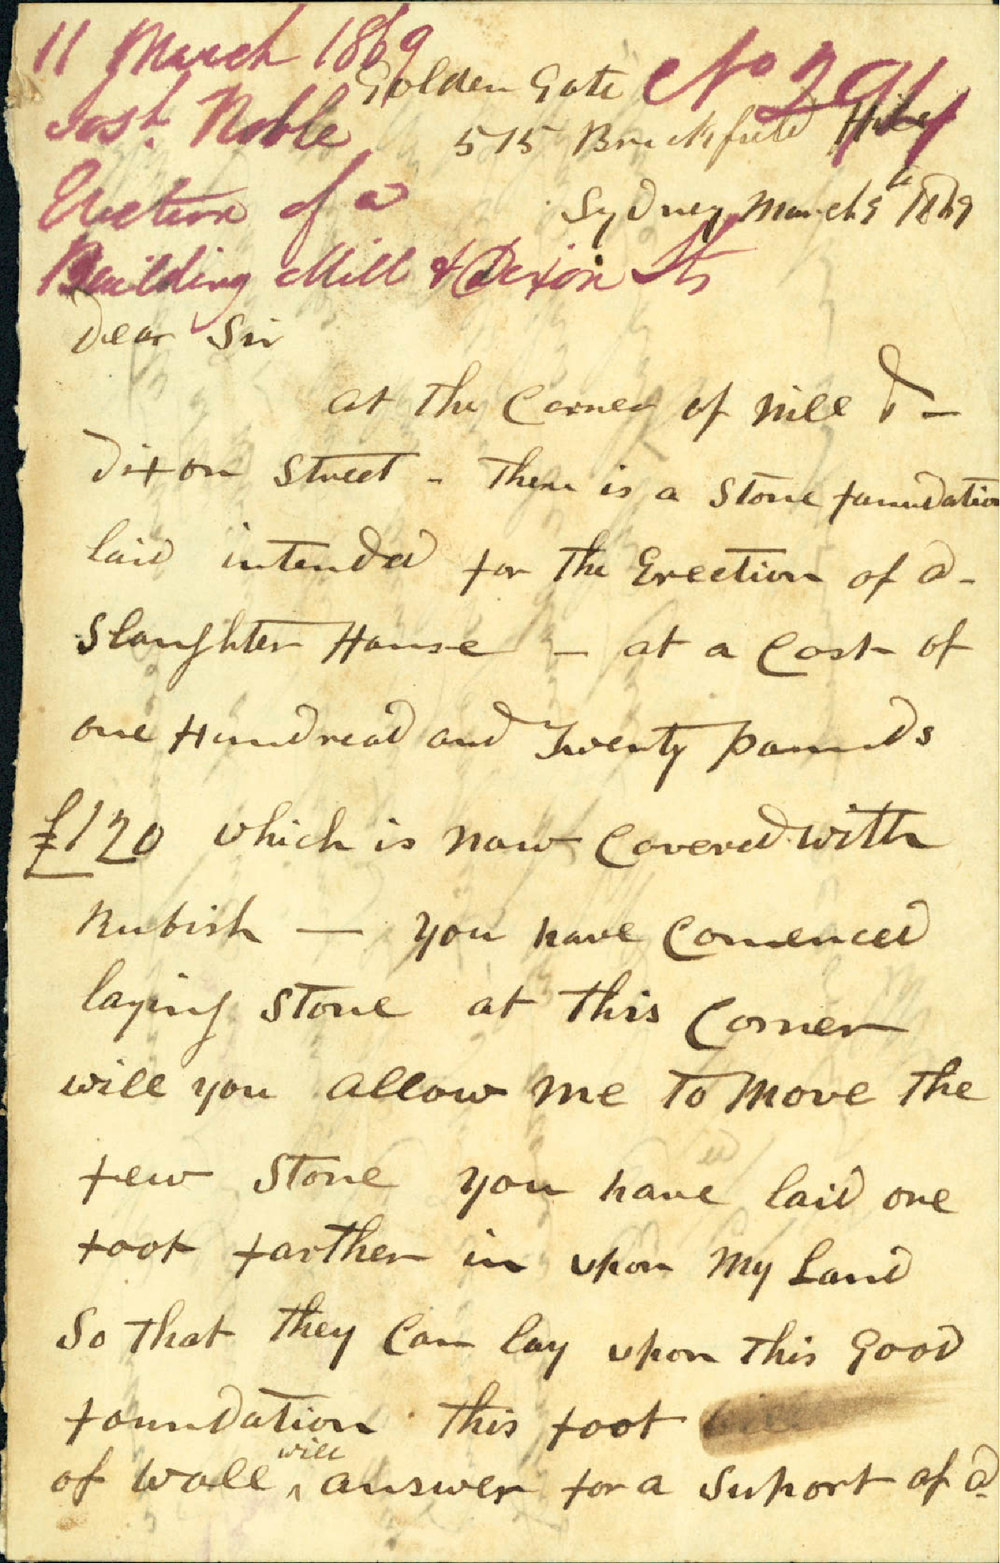 11 March 1869
Josh. Noble
Erection of a
Building Mill & Dixon Sts
No 291
Golden Gate
515 Brickfield Hill
Sydney March 9th 1869
Dear Sir
at the Corner of Mill & -
Dixon Street - there is a Stone foundation
laid intended for the Erection of a -
Slaughter House - at a Cost of
one Hundread and Twenty pounds
£120 which is now Covered with
Rubish — you have Comenced
laying Stone at this Corner
will you allow me to Move the
few Stone you have laid one
foot farther in upon My Land
So that they Can lay upon this Good
foundation this foot
of wall will answer for a Suport of a